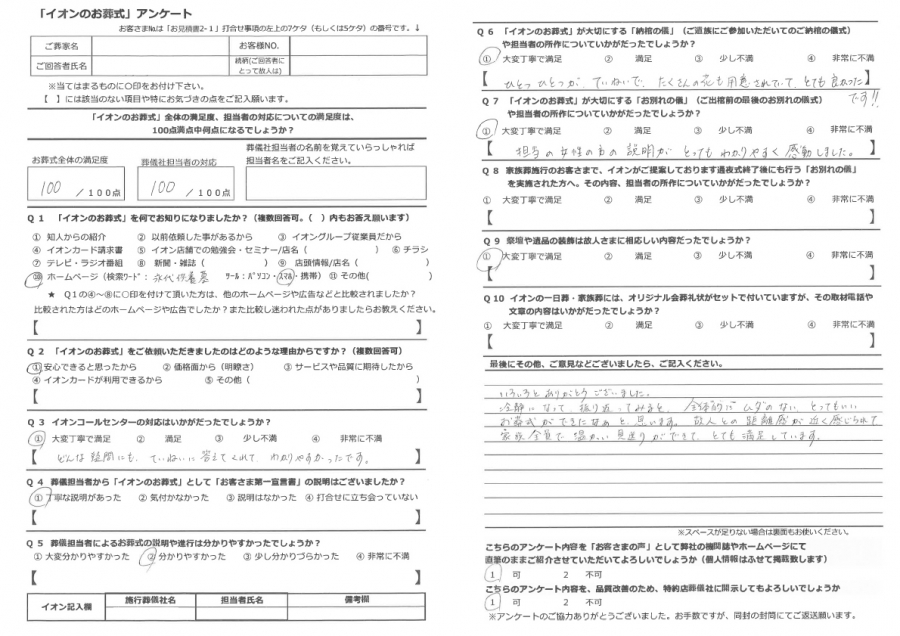 「イオンのお葬式」アンケート
お客さま№は「お見積書2-1」打合せ事項の左上の7ケタ（もしくは5ケタ）の番号です。↓
ご葬家名
お客様NO.
ご回答者氏名
続柄(ご回答者にとって故人は)
※当てはまるものに○印をお付け下さい。
【　】には該当のない項目や特にお気づきの点をご記入願います。
「イオンのお葬式」全体の満足度、担当者の対応についての満足度は、
100点満点中何点になるでしょうか？
お葬式全体の満足度
葬儀社担当者の対応
葬儀社担当者の名前を覚えていらっしゃれば
担当者名をご記入ください。
100 / 100点
100 / 100点
Q 1　「イオンのお葬式」を何でお知りになりましたか？（複数回答可。（　）内もお答え願います）
① 知人からの紹介　② 以前依頼した事があるから　③ イオングループ従業員だから
④ イオンカード請求書　⑤ イオン店舗での勉強会・セミナー/店名（　）　⑥ チラシ
⑦ テレビ・ラジオ番組　⑧ 新聞・雑誌（　）　⑨ 店頭情報/店名（　）
⑩ ホームページ（検索ワード：永代供養墓　ツール：パソコン・スマホ・携帯）⑪ その他(　)
★ Q1の④～⑧に○印を付けて頂いた方は、他のホームページや広告などと比較されましたか？
比較された方はどのホームページや広告でしたか？また比較し迷われた点がありましたらお教えください。
【　】
Q 2　「イオンのお葬式」をご依頼いただきましたのはどのような理由からですか？（複数回答可）
①安心できると思ったから　② 価格面から（明瞭さ）　③ サービスや品質に期待したから
④ イオンカードが利用できるから　⑤ その他（　）
【　】
Q 3　イオンコールセンターの対応はいかがだったでしょうか？
①　大変丁寧で満足　②　満足　③　少し不満　④　非常に不満
【 どんな疑問にも、ていねいに答えてくれて、わかりやすかったです。 】
Q 4　葬儀担当者から「イオンのお葬式」として「お客さま第一宣言書」の説明はございましたか？
① 丁寧な説明があった　② 気付かなかった　③ 説明はなかった　④ 打合せに立ち会っていない
【　】
Q 5　葬儀担当者によるお葬式の説明や進行は分かりやすかったでしょうか？
① 大変分かりやすかった　② 分かりやすかった　③ 少し分かりづらかった　④ 非常に不満
【　】
イオン記入欄
施行葬儀社名
担当者氏名
備考欄
Q 6　「イオンのお葬式」が大切にする「納棺の儀」（ご遺族にご参加いただいてのご納棺の儀式）
や担当者の所作についていかがだったでしょうか？
①　大変丁寧で満足　②　満足　③　少し不満　④　非常に不満
【 ひとつひとつが、ていねいで、たくさんの花も用意されていて、とても良かった 】
です!!
Q 7　「イオンのお葬式」が大切にする「お別れの儀」（ご出棺前の最後のお別れの儀式）
や担当者の所作についていかがだったでしょうか？
①　大変丁寧で満足　②　満足　③　少し不満　④　非常に不満
【 担当の女性の方の説明がとってもわかりやすく感動しました。 】
Q 8　家族葬施行のお客さまで、イオンがご提案しております通夜式終了後にも行う「お別れの儀」
を実施された方へ。その内容、担当者の所作についていかがだったでしょうか？
①　大変丁寧で満足　②　満足　③　少し不満　④　非常に不満
【　】
Q 9　祭壇や遺品の装飾は故人さまに相応しい内容だったでしょうか？
①　大変丁寧で満足　②　満足　③　少し不満　④　非常に不満
【　】
Q 10　イオンの一日葬・家族葬には、オリジナル会葬礼状がセットで付いていますが、その取材電話や
文章の内容はいかがだったでしょうか？
①　大変丁寧で満足　②　満足　③　少し不満　④　非常に不満
【　】
最後にその他、ご意見などございましたら、ご記入ください。
いろいろとありがとうございました。
冷静になって、振り返ってみると、全体的にムダのない、とってもいい
お葬式ができたなぁと思います。故人との距離感が近く感じられて
家族全員で温かい見送りができて、とても満足しています。
※スペースが足りない場合は裏面もお使いください。
こちらのアンケート内容を「お客さまの声」として弊社の機関誌やホームページにて
直筆のままご紹介させていただいてよろしいでしょうか（個人情報はふせて掲載致します）
1　可　2　不可
こちらのアンケート内容を、品質改善のため、特約店葬儀社に開示してもよろしいでしょうか
1　可　2　不可
※アンケートのご協力ありがとうございました。お手数ですが、同封の封筒にてご返送願います。